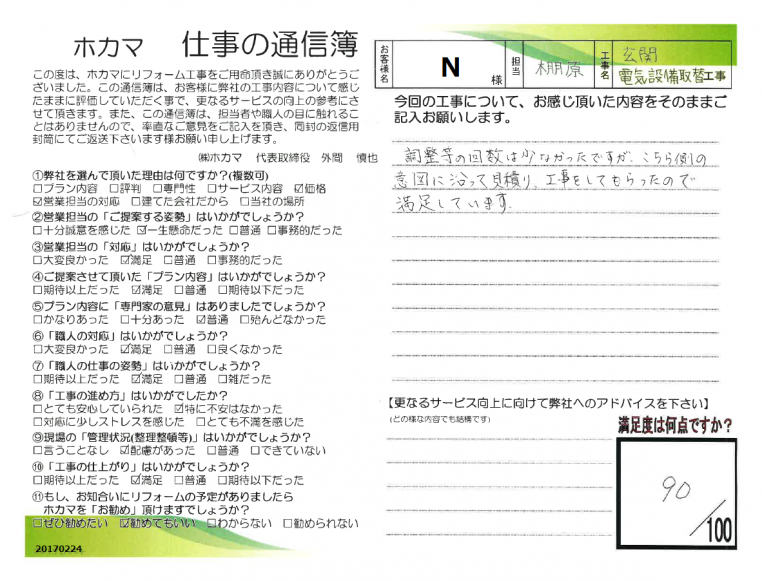 ホカマ 仕事の通信簿
この度は、ホカマにリフォーム工事をご用命頂き誠にありがとうご
ざいました。この通信簿は、お客様に弊社の工事内容について感じ
たままに評価していただく事で、更なるサービスの向上の参考にさ
せて頂きます。また、この通信簿は、担当者や職人の目に触れるこ
とはありませんので、率直なご意見をご記入を頂き、同封の返信用
封筒にてご返送下さいます様お願い申し上げます。
㈱ホカマ 代表取締役 外間 慎也
①弊社を選んで頂いた理由は何ですか?(複数可)
□プラン内容 □評判 □専門性 □サービス内容 ☑価格
☑営業担当の対応 □建てた会社だから □当社の場所
②営業担当の「ご提案する姿勢」はいかがでしょうか?
□十分誠意を感じた ☑一生懸命だった □普通 □事務的だった
③営業担当の「対応」はいかがでしょうか?
□大変良かった ☑満足 □普通 □事務的だった
④ご提案させて頂いた「プラン内容」はいかがでしょうか?
□期待以上だった ☑満足 □普通 □期待以下だった
⑤プラン内容に「専門家の意見」はありましたでしょうか?
□かなりあった □十分あった ☑普通 □殆んどなかった
⑥「職人の対応」はいかがでしょうか?
□大変良かった ☑満足 □普通 □良くなかった
⑦「職人の仕事の姿勢」はいかがでしょうか?
□期待以上だった ☑満足 □普通 □雑だった
⑧「工事の進め方」はいかがでしたか?
□とても安心していられた ☑特に不安はなかった
□対応に少しストレスを感じた □とても不満を感じた
⑨現場の「管理状況(整理整頓等)」はいかがでしょうか?
□言うことなし ☑配慮があった □普通 □できていない
⑩「工事の仕上がり」はいかがでしょうか?
□期待以上だった ☑満足 □普通 □期待以下だった
⑪もし、お知合いにリフォームの予定がありましたら
ホカマを「お勧め」頂けますでしょうか?
□ぜひ勧めたい ☑勧めてもいい □わからない □勧められない
20170224
お客様名 N 様 担当 棚原 工事名 玄関
電気設備取替工事
今回の工事について、お感じ頂いた内容をそのままご
記入お願いします。
調整等の回数は少なかったですが、こちら側の
意図に沿って見積り、工事をしてもらったので
満足しています.
【更なるサービス向上に向けて弊社へのアドバイスを下さい】
(どの様な内容でも結構です)
満足度は何点ですか?
90
/100